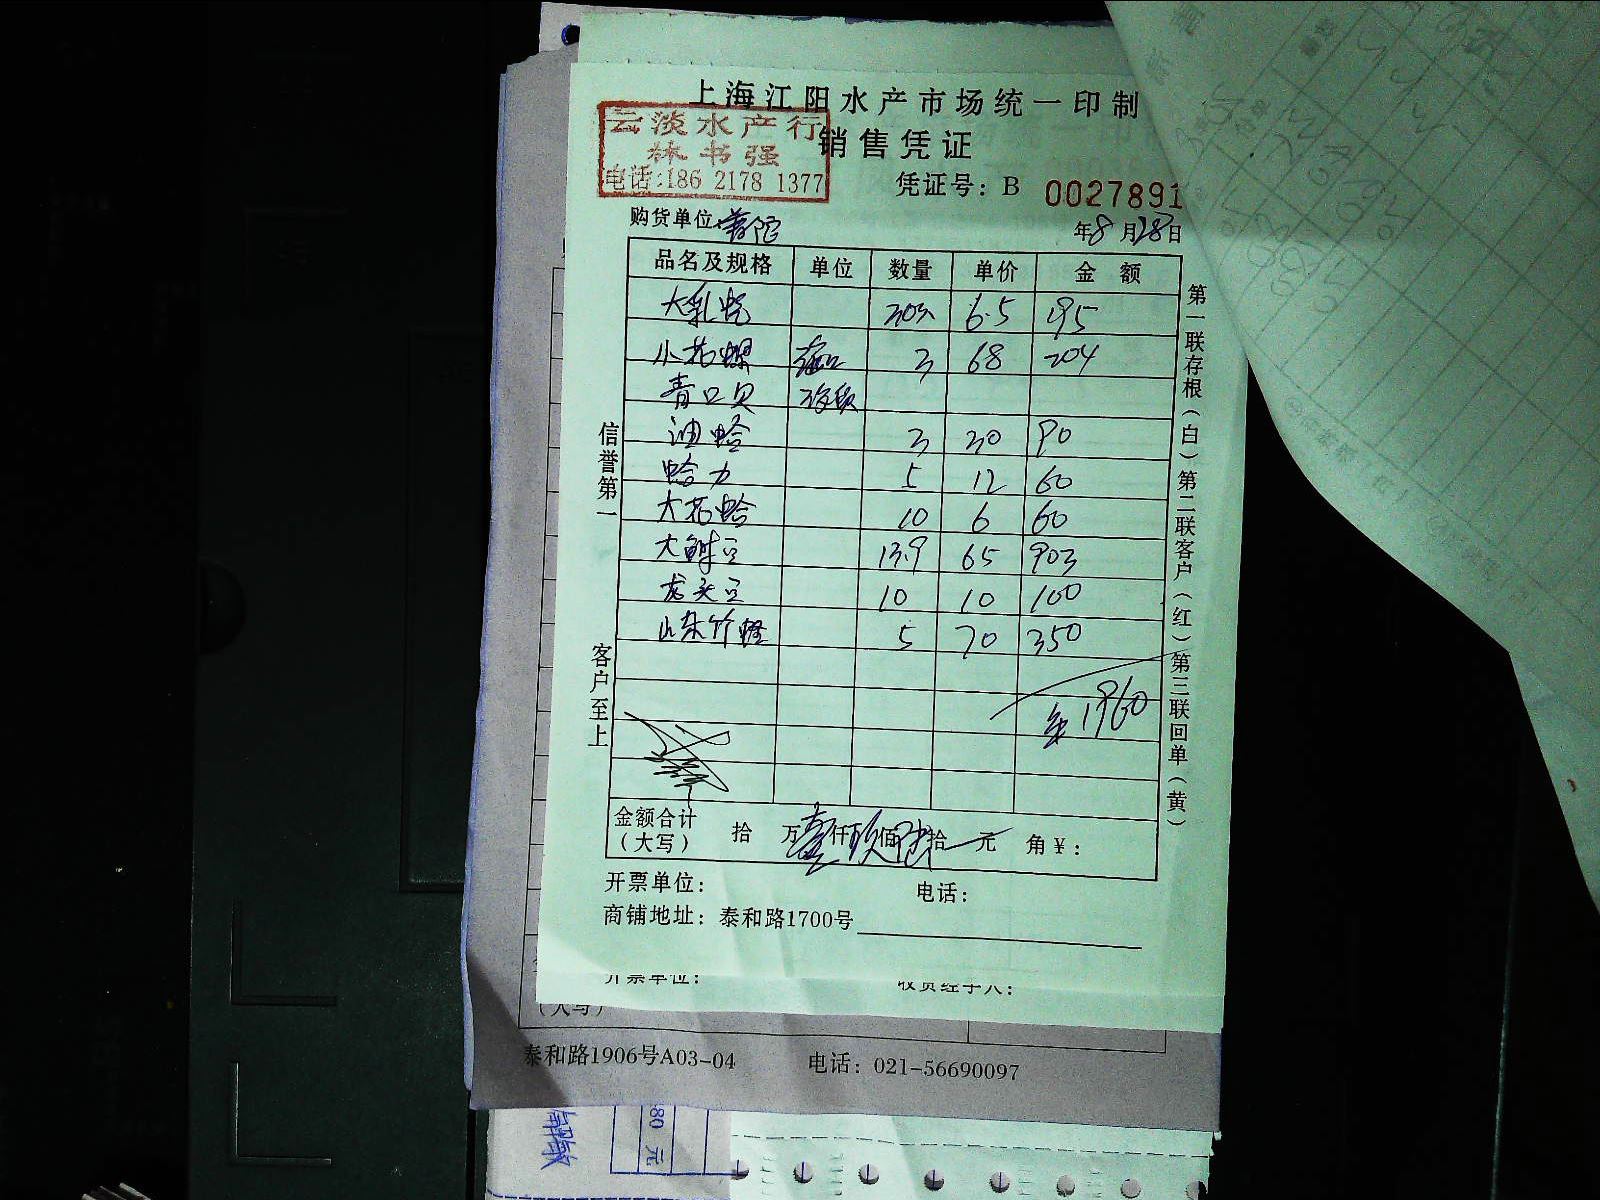 上海江阳水产市场统一印制
云淡水产行
林书强
电话:186 2178 1377
销售凭证
凭证号：B 0027891
购货单位 普陀
年8月28日
品名及规格 单位 数量 单价 金额
大乳蛏 30 6.5 195
小花螺 3 68 204
青口贝
油蛤 3 30 90
蛤力 5 12 60
大花蛤 10 6 60
大鲜豆 13.9 65 903
龙头豆 10 10 100
山东竹蛏 5 70 350
1960
金额合计
（大写） 拾 万壹仟玖佰陆拾 元 角¥：
开票单位： 电话：
商铺地址：泰和路1700号
信誉第一
客户至上
第一联存根（白）第二联客户（红）第三联回单（黄）
开票单位： 收货经手人：
（大写）
泰和路1906号A03-04 电话：021-56690097
80 元